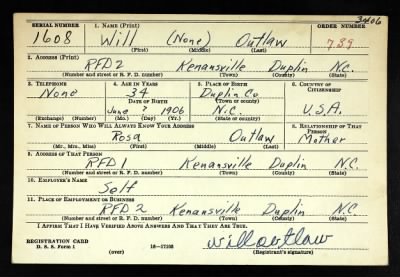 3406
SERIAL NUMBER 1. NAME (Print) ORDER NUMBER
1608 Will (None) Outlaw 739
(First) (Middle) (Last)
2. ADDRESS (Print)
RFD 2 Kenansville Duplin N.C.
(Number and street or R. F. D. number) (Town) (County) (State)
3. TELEPHONE 4. AGE IN YEARS 5. PLACE OF BIRTH 6. COUNTRY OF CITIZENSHIP
None 34 Duplin Co
DATE OF BIRTH (Town or county)
June ? 1906 N.C. U.S.A.
(Exchange) (Number) (Mo.) (Day) (Yr.) (State or country)
7. NAME OF PERSON WHO WILL ALWAYS KNOW YOUR ADDRESS 8. RELATIONSHIP OF THAT PERSON
Rosa Outlaw Mother
(Mr., Mrs., Miss) (First) (Middle) (Last)
9. ADDRESS OF THAT PERSON
RFD 1 Kenansville Duplin N.C.
(Number and street or R. F. D. number) (Town) (County) (State)
10. EMPLOYER'S NAME
Self
11. PLACE OF EMPLOYMENT OR BUSINESS
RFD 2 Kenansville Duplin N.C.
(Number and street or R. F. D. number) (Town) (County) (State)
I AFFIRM THAT I HAVE VERIFIED ABOVE ANSWERS AND THAT THEY ARE TRUE.
REGISTRATION CARD
D. S. S. Form 1 16—17105 will outlaw
(over) (Registrant's signature)